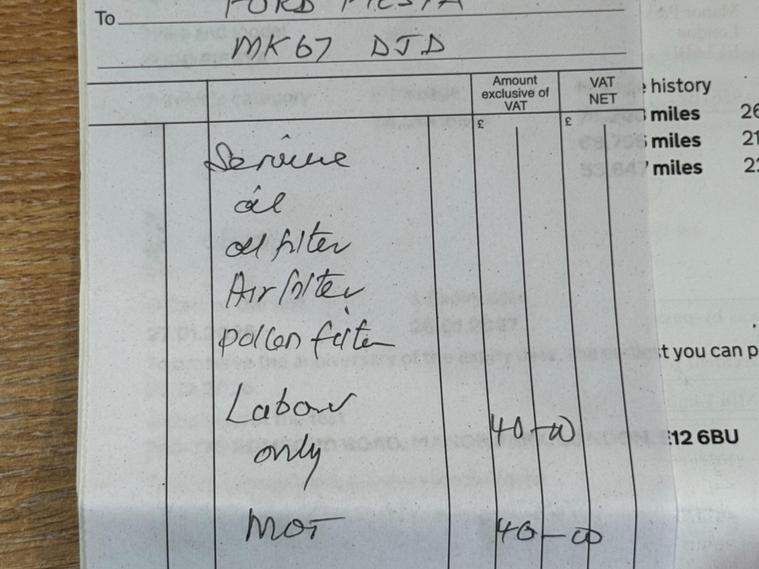 To FORD FIESTA
MK67 DJD
Amount exclusive of VAT
VAT NET
£ £
Service
oil
oil filter
Air filter
pollen filter
Labour
only
40-00
MOT 40-00
history
miles 26
miles 21
miles 22
t you can p
E12 6BU